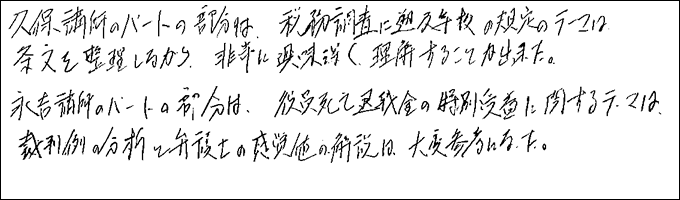 久保講師のパートの部分は、税務調査に遡及年校の規定のテーマは
条文を整理しながら、非常に興味深く、理解することが出来ました。
永吉講師のパートの部分は、役員死亡退職金の特別受益に関するテーマは、
裁判例の分析と弁護士の感覚値の解説は、大変参考になった。